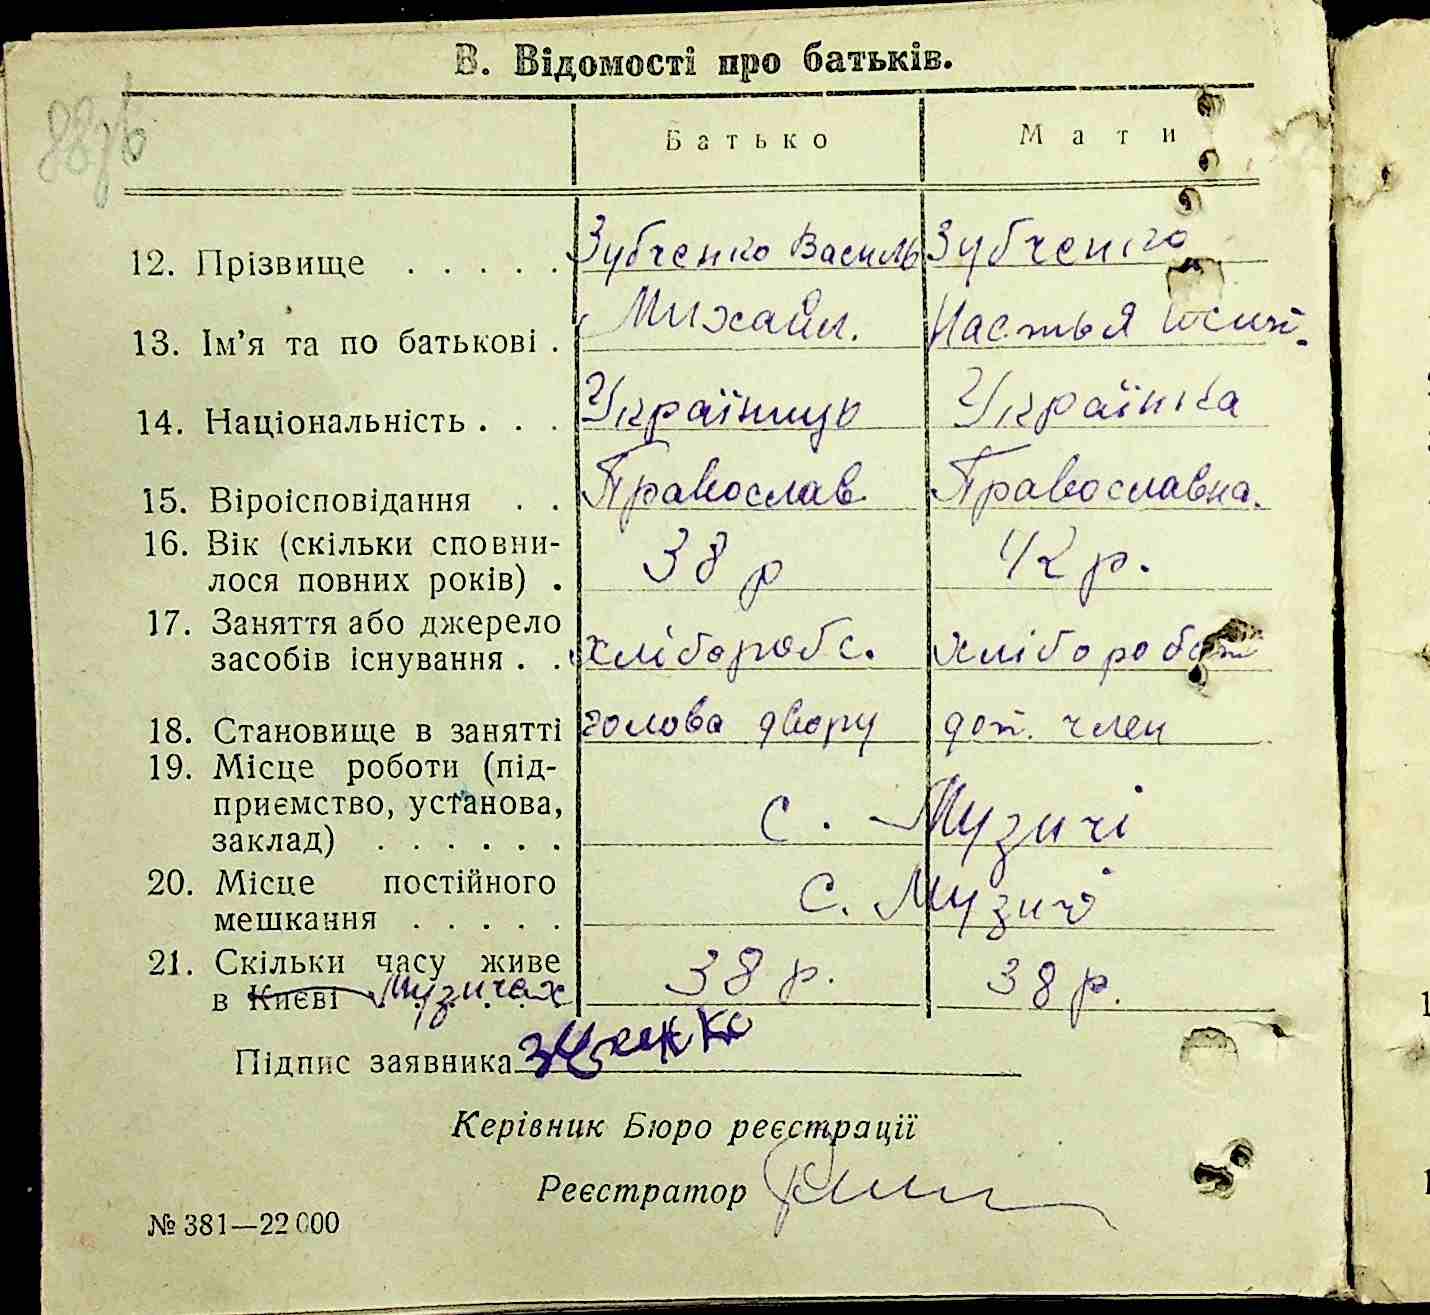 В. Відомості про батьків.
Батько Мати
12. Прізвище . . . . . Зубченко Василь Зубченко
13. Ім'я та по батькові . Михайл. Настья
14. Національність . . . Українць Українка
15. Віроісповідання . . Православ. Православна.
16. Вік (скільки сповни-
лося повних років) . 38 р 42 р.
17. Заняття або джерело
засобів існування . . хлібороб с.
18. Становище в занятті голова двору доп. член
19. Місце роботи (під-
приємство, установа,
заклад) . . . . . . с. Музичі
20. Місце постійного
мешкання . . . . . с. Музичі
21. Скільки часу живе
в Києві Музичах 38 р. 38 р.
Підпис заявника
Керівник Бюро реєстрації
Реєстратор
№ 381—22 000